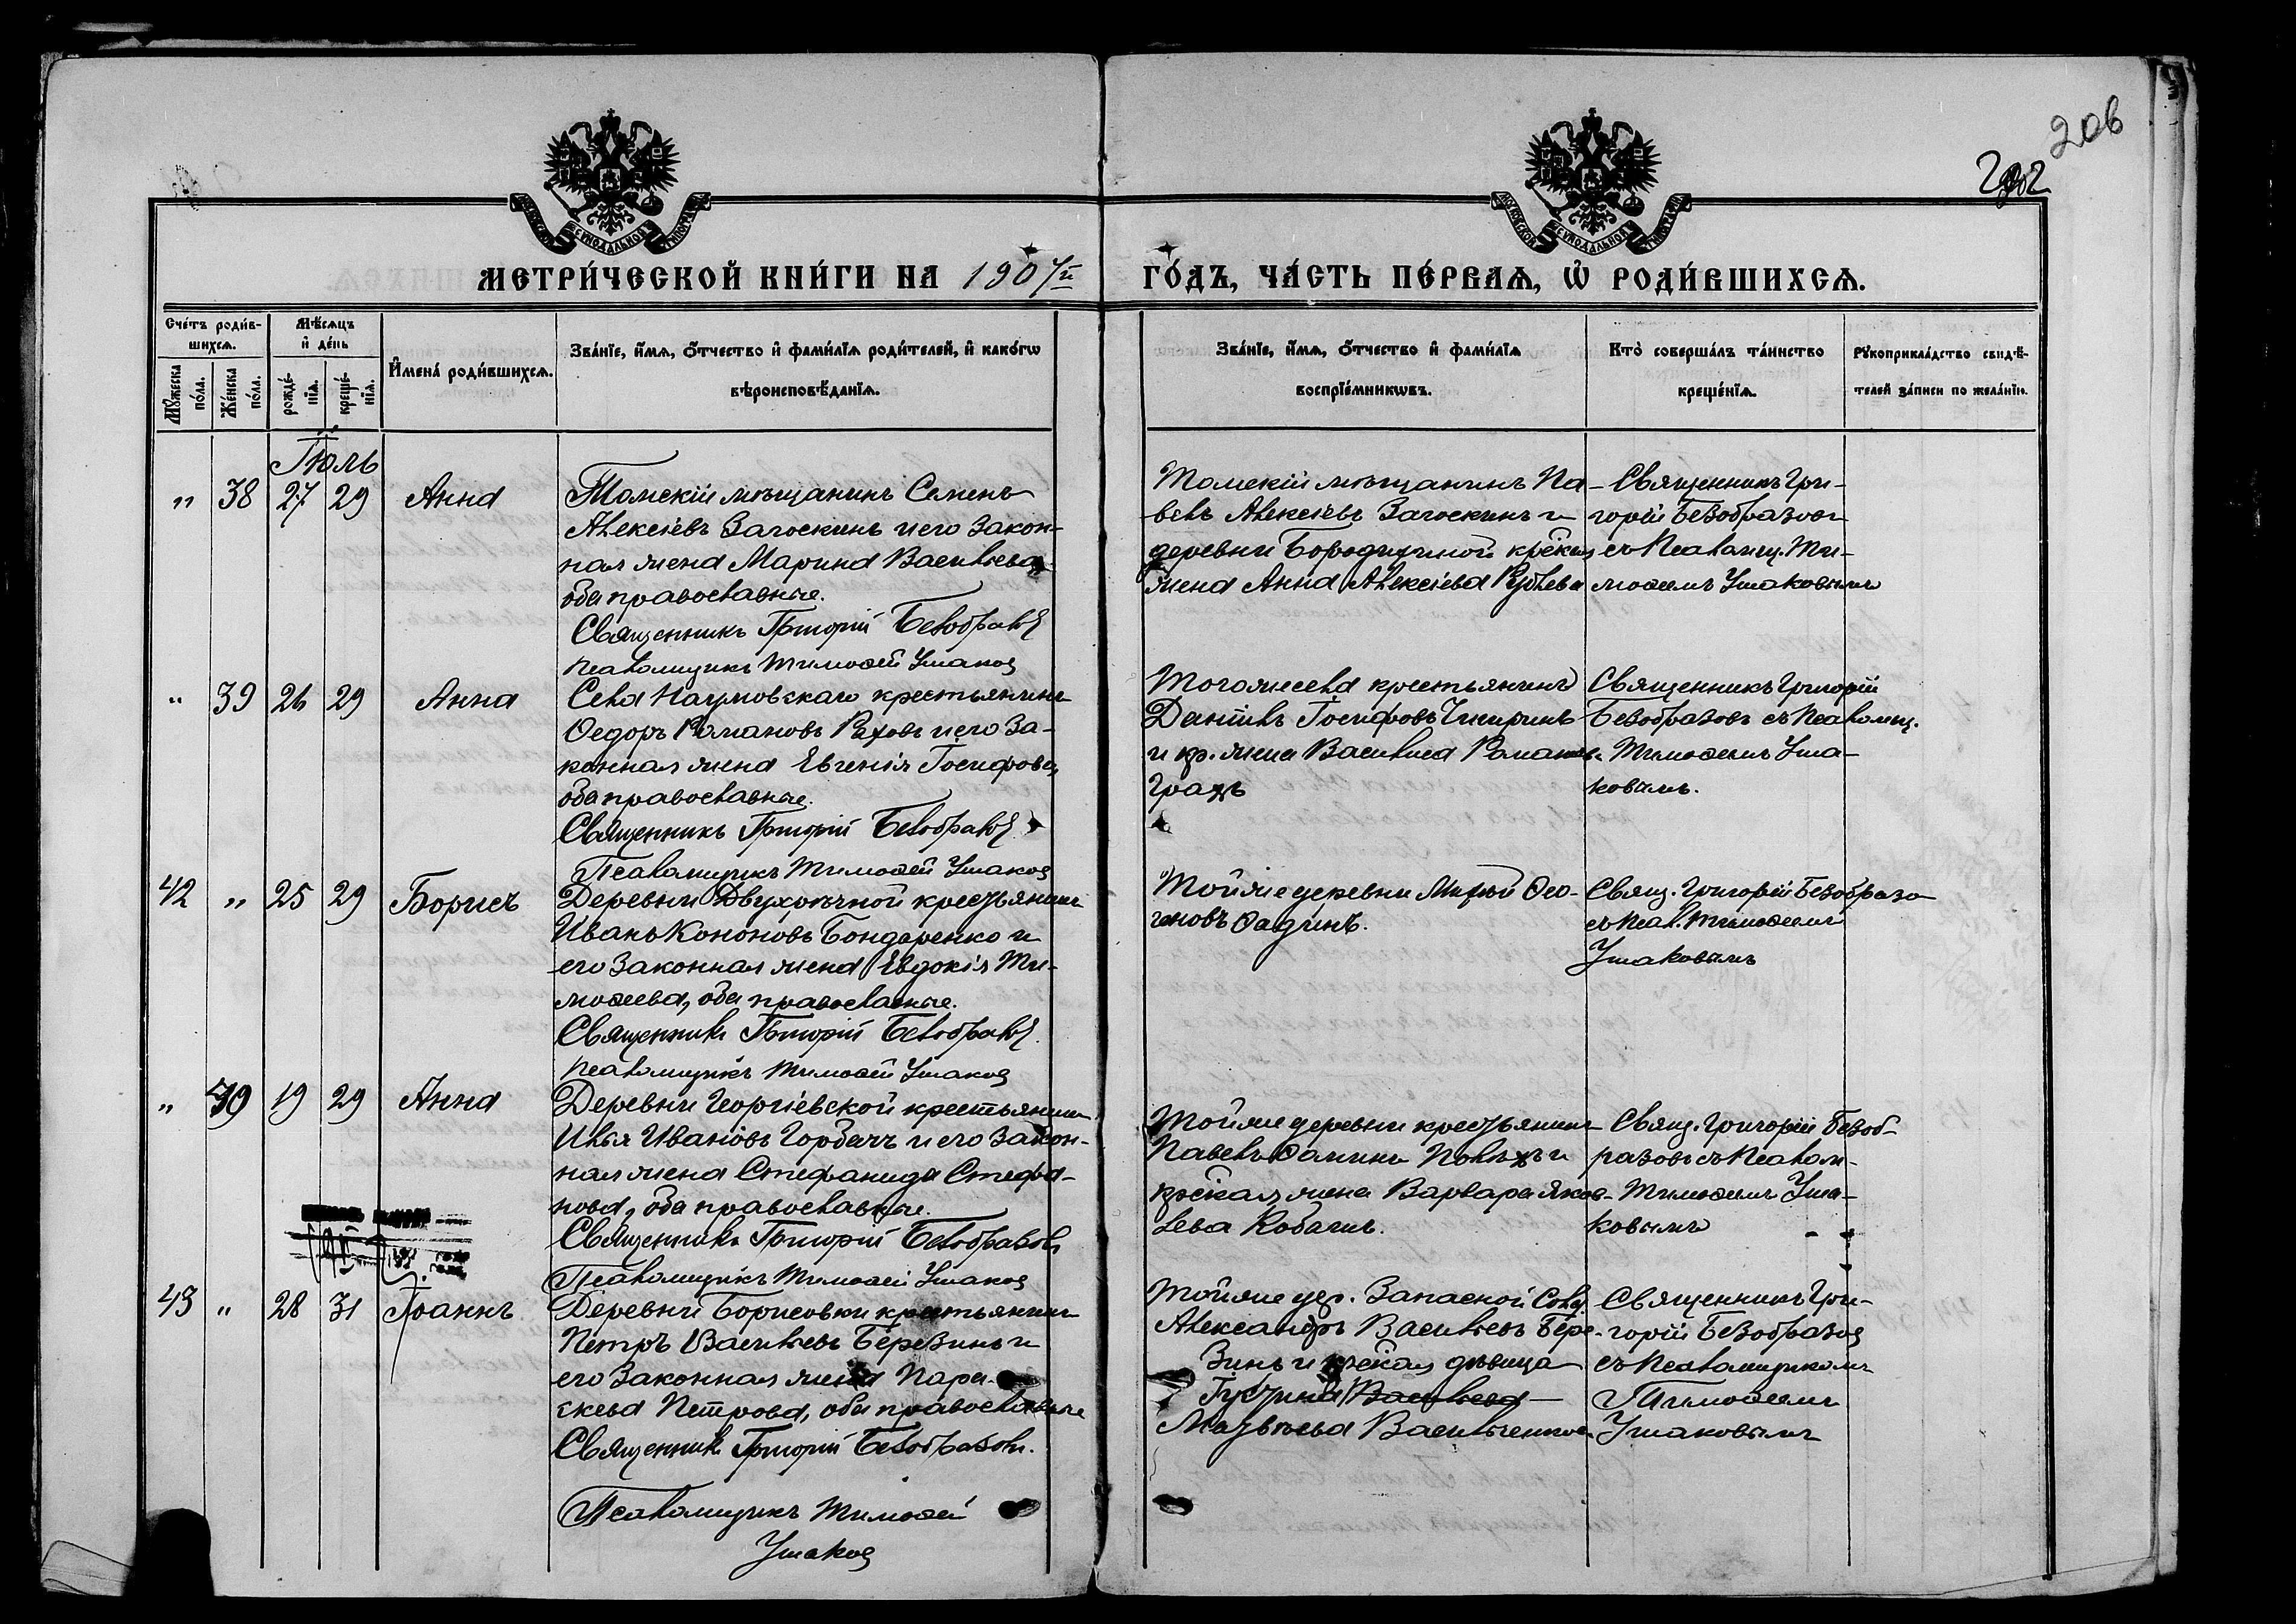 206
202
МЕТРИ́ЧЕСКОЙ КНИ́ГИ НА 1907й ГО́ДЪ, ЧА́СТЬ ПЕ́РВАѦ, Ѡ РОДИ́ВШИХСѦ.
Сче́тъ роди́в-
шихсѧ.
Мꙋжеска
по́ла.
Же́нска
по́ла.
Мѣ́сѧцъ
и де́нь
рожде́-
нїѧ.
креще́-
нїѧ.
И҆мена̀ роди́вшихсѧ.
Зва́нїе, и҆́мѧ, ѻ҆́тчество и҆ фами́лїѧ роди́телей, и҆ како́гѡ
вѣроисповѣ́данїѧ.
Зва́нїе, и҆́мѧ, ѻ҆́тчество и҆ фами́лїѧ
воспрїе́мникѡвъ.
Кто̀ соверша́лъ та́инство
креще́нїѧ.
Рꙋкоприкла́дство свидѣ́-
телей за́писи по жела́нїю.
Іюль
" 38 27 29 Анна
Томскій мѣщанинъ Семенъ
Алексіевъ Загоскинъ и его закон-
ная жена Марина Васильева
оба православные.
Священникъ Григорій Безобразов
Псаломщикъ Тимофей Ушаков
Томскій мѣщанинъ Па-
велъ Алексіевъ Загоскинъ и
деревни Бородиной крская
жена Анна Алексіева
Священникъ Гри-
горій Безобразовъ
съ Псаломщ. Ти-
мофеемъ Ушаковымъ
" 39 26 29 Анна
Села Наумовскаго крестьянинъ
Ѳедоръ Романовъ и его за-
конная жена Евгенія Іосифова,
оба православные.
Священникъ Григорій Безобразов
Псаломщикъ Тимофей Ушаков
Того же села крестьянинъ
Даніилъ Іосифовъ Чигиринъ
и кр. жена Василиса Романова
Градъ
Священникъ Григорій
Безобразовъ съ Псаломщ.
Тимофеемъ Уша-
ковымъ.
42 " 25 29 Борисъ
Деревни Двухрѣчной крестьянинъ
Иванъ Кононовъ Бондаренко и
его законная жена Евдокія Ти-
мофеева, оба православные.
Священникъ Григорій Безобразов
Псаломщикъ Тимофей Ушаков
Той же деревни
Свящ. Григорій Безобразо
съ Псал. Тимофеемъ
Ушаковымъ
" 40 19 29 Анна
Деревни Георгіевской крестьянинъ
Илья Ивановъ Горбачъ и его закон-
ная жена Стефанида Стефа-
нова, оба православные.
Священникъ Григорій Безобразовъ
Псаломщикъ Тимофей Ушаков
Той же деревни крестьянинъ
Павелъ и
крская жена Варвара Яков-
лева
Свящ. Григорій Безоб-
разовъ съ Псалом-
Тимофеемъ Уша-
ковымъ
43 " 28 31 Іоаннъ
Деревни Борисовки крестьянинъ
Петръ Васильевъ Березинъ и
его законная жена Пара-
скева Петрова, оба православные
Священникъ Григорій Безобразовъ.
Псаломщикъ Тимофей
Ушаков
Той же дер. Запасной Солд.
Александръ Васильевъ Бере-
зинъ и крская дѣвица
Васильева
Матвѣева
Священникъ Гри-
горій Безобразов
съ Псаломщикомъ
Тимофеемъ
Ушаковымъ